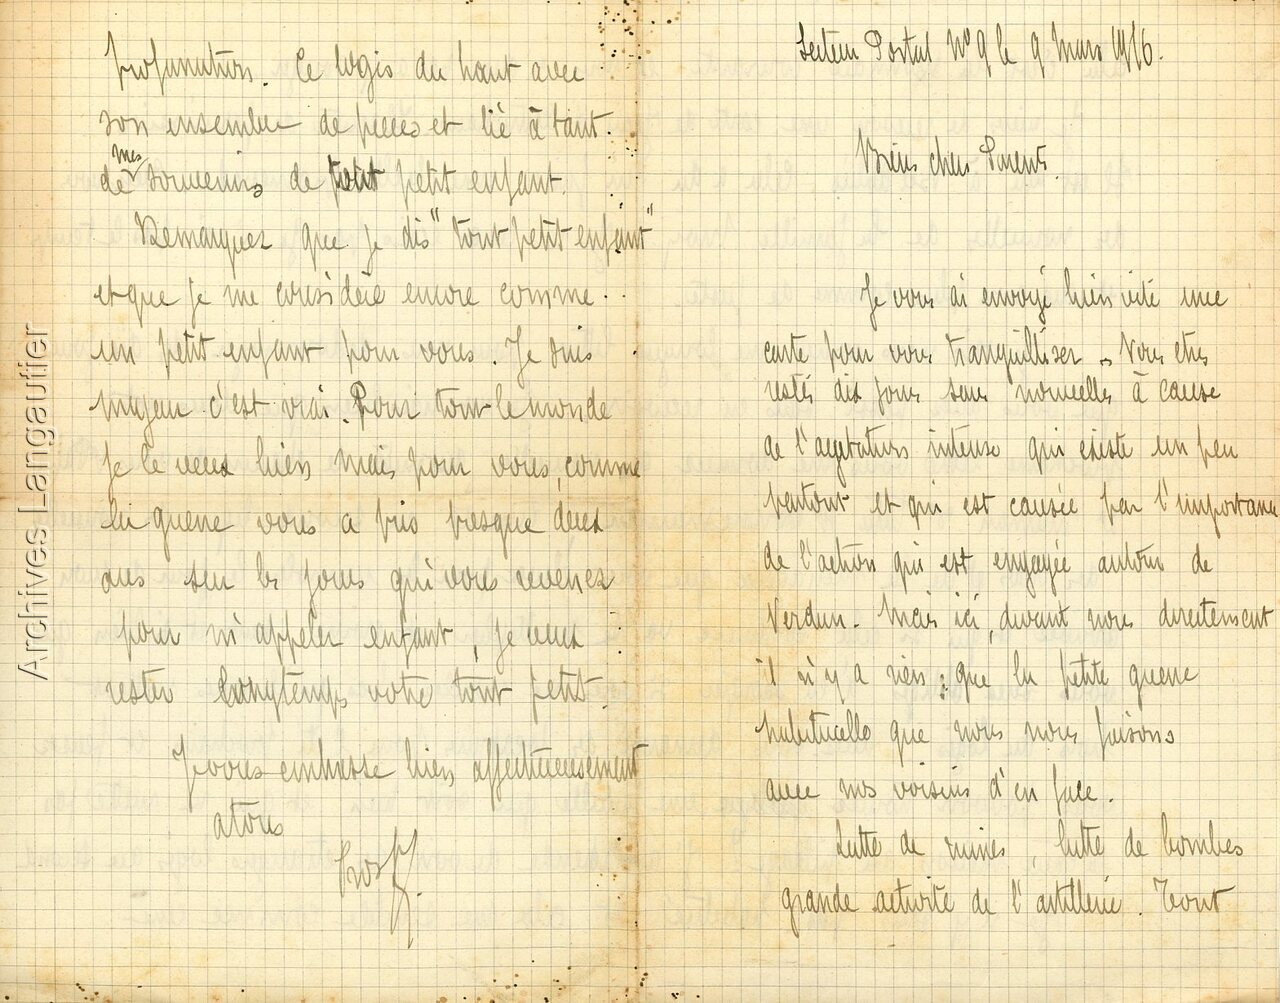 Secteur Postal Nº 9 le 9 Mars 1916.
Biens chers Parents.
Je vous ai envoyé bien vite une
carte pour vous tranquilliser. Vous etes
restés dix jours sans nouvelles à cause
de l'agitation intense qui existe un peu
partout et qui est causée par l'importance
de l'action qui est engagée autour de
Verdun. Mais ici, devant nous directement
il n'y a rien; que la petite guerre
habituelle que nous nous faisons
avec nos voisins d'en face.
Lutte de mines, lutte de bombes
grande activité de l'artillerie. Tout
profanation. Ce logis du haut avec
son ensemble de pièces et lié à tant
de mes souvenirs de petit enfant.
Remarquez que je dis "tout petit enfant"
et que je me considère encore comme
un petit enfant pour vous. Je suis
majeur c'est vrai. Pour tout le monde
je le veux bien mais pour vous, comme
la guerre vous a pris presque deux
ans sur les jours qui vous revenez
pour m'appeler enfant, je veux
rester longtemps votre tout petit.
Je vous embrasse bien affectueusement
a tous
Archives Langautier